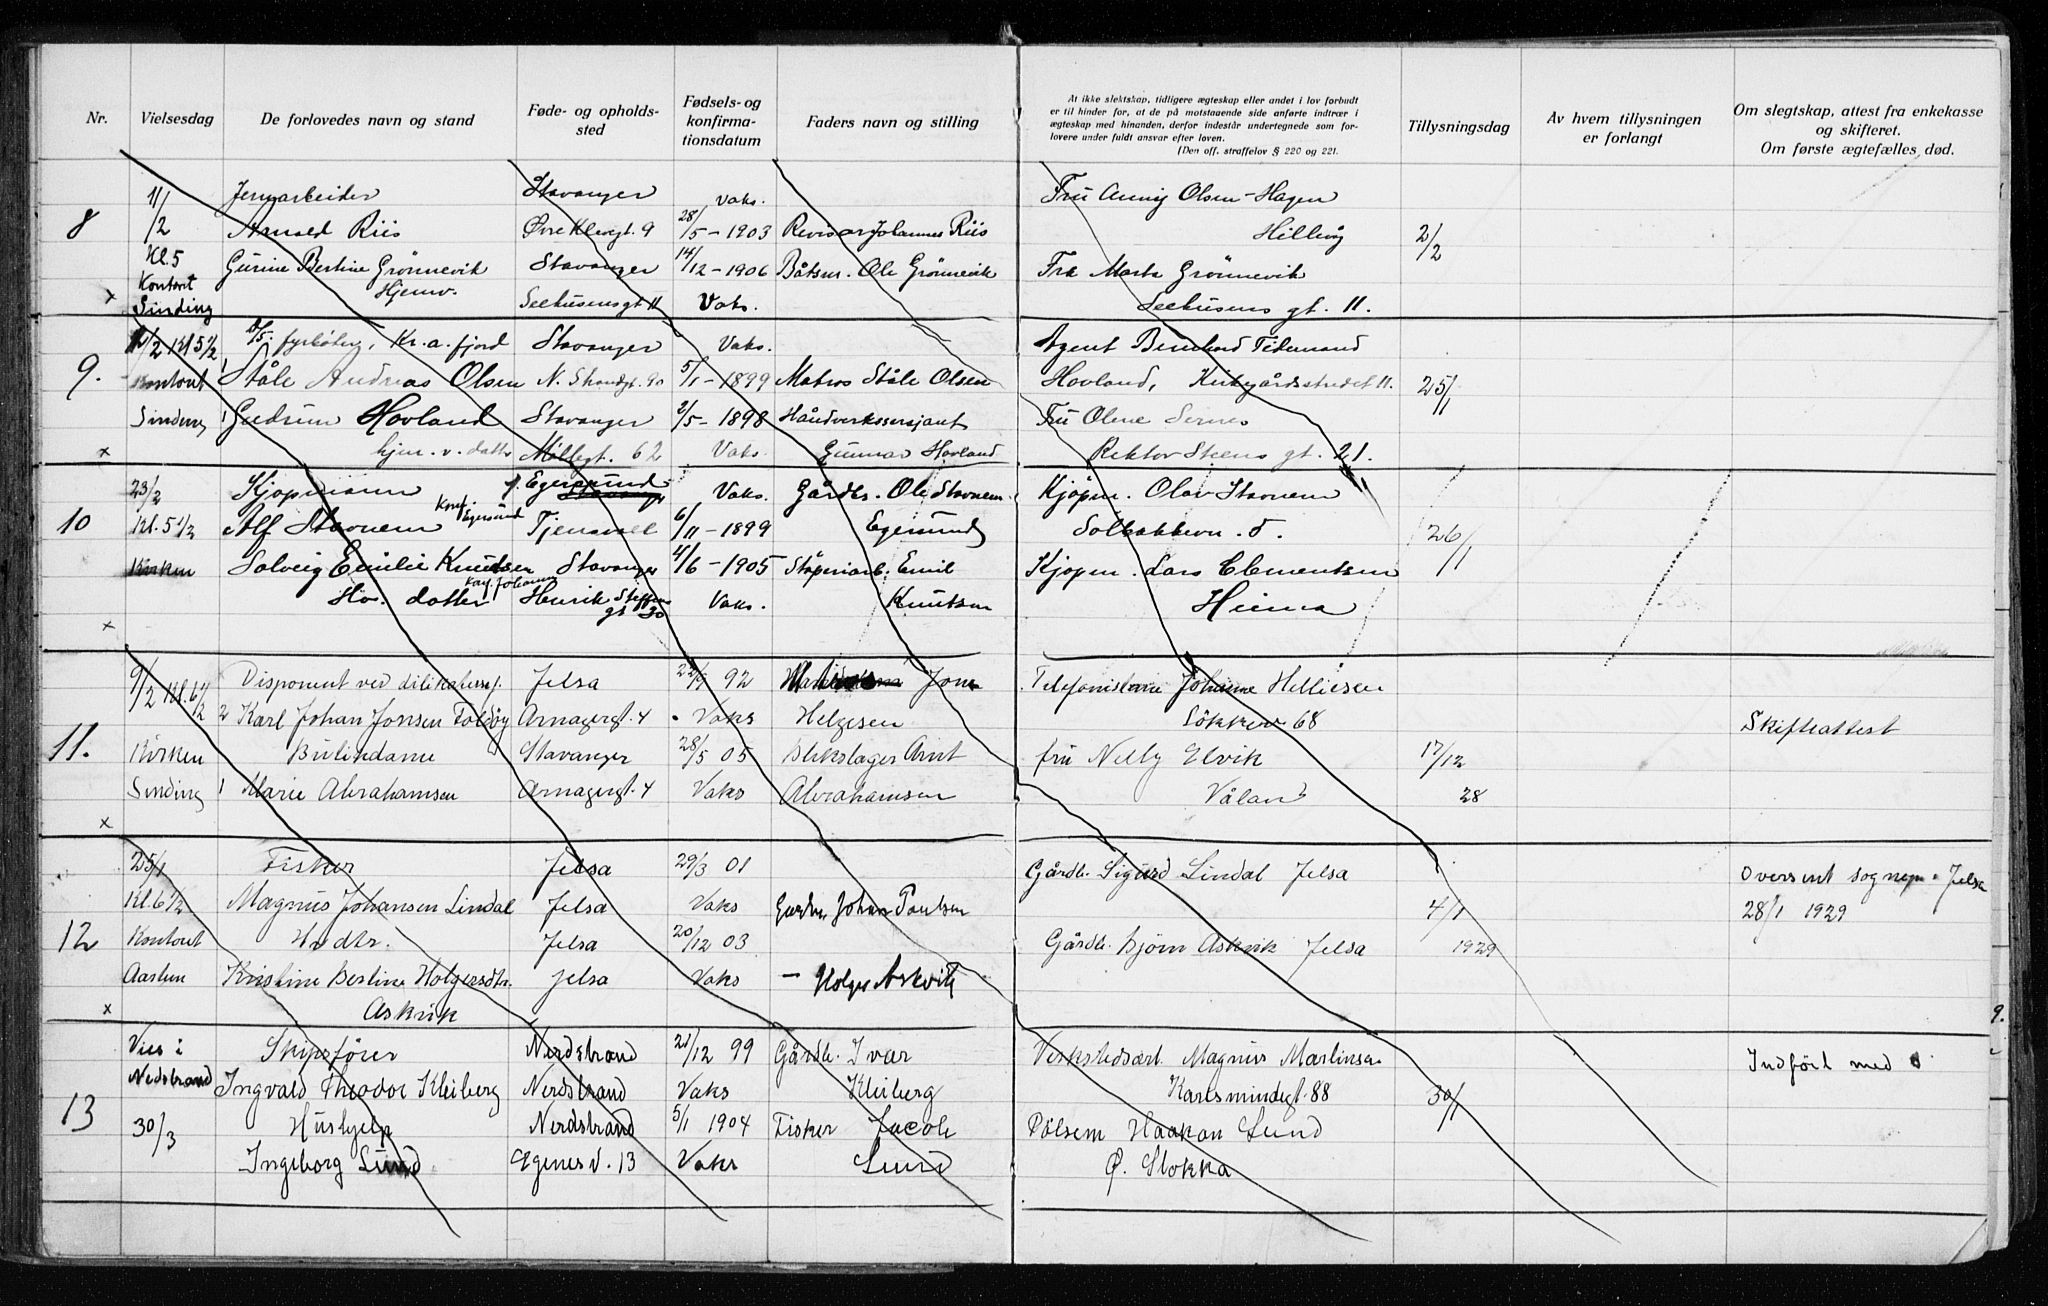 Nr.
Vielsesdag
De forlovedes navn og stand
Føde- og opholds-
sted
Fødsels- og
konfirma-
tionsdatum
Faders navn og stilling
At ikke slektskap, tidligere ægteskap eller andet i lov forbudt
er til hinder for, at de på motstaaende side anførte indtrær i
ægteskap med hinanden, derfor indestår undertegnede som for-
lovere under fuldt ansvar efter loven.
(Den off. straffelov § 220 og 221.
Tillysningsdag
Av hvem tillysningen
er forlangt
Om slegtskap, attest fra enkekasse
og skifteret.
Om første ægtefælles død.
8
1/2 Jernarbeider Stavanger Vaks. Fru Olsen-Hagen
Arnold Riis Øvre Klevgt. 9 28/5 - 1903 Revisor Johannes Riis Hillevåg 2/2
Kl. 5 Gurine Bertine Grönnevik Stavanger 14/12 - 1906 Båtsm. Ole Grönnevik Fra Marta Grönnevik
Kontoret Hjemv. Seehusensgt 11 Vaks. Seehusens gt. 11.
x Sinding
9.
/2 Kl 5 1/2 fyrböter, Kr.a.fjord Stavanger Vaks. Agent Bernhard Tidemand
Kontoret Ståle Andreas Olsen N. Strandgt. 90 5/1 - 1899 Matros Ståle Olsen Hovland, Kirkegårdsstredet 11. 25/1
Sinding 1 Gudrun Hovland Stavanger 2/5 - 1898 Håndverkssersjant Fru Olene
x hjem. v. datter Möllegt. 62 Vaks. Gunnar Hovland Rektor Steens gt. 21.
10
23/2 Kjöpmann f. Egersund Stavanger Vaks. Gårdbr. Ole Stavnem Kjöpm. Olav Stavnem
Kl. 5 1/2 Alf Stavnem Konf. Egersund Tjensvoll 6/11 - 1899 Egersund Solbakkevn. 5. 26/1
Kirken Solveig Emilie Knudsen Stavanger 4/6 - 1905 Stöperiarb. Emil Kjöpm. Lars Clementsen
Hov. datter Henrik Steffens gt 30 Vaks. Knutsen Hinna
x
11.
9/2 Kl. 6 1/2 Disponent ved Jelsa 22/9 92 Jone Telefonistinne Johanne Helliesen
2 Karl Johan Jonsen Foldöy Arnagergt. 4 Vaks Helgesen Lökkev. 68 Skifteattest
Kirken Butikdame Stavanger 28/5 05 Blikslager Arnt fru Nelly Elvik 17/12
Sinding 1 Marie Abrahamsen Arnagergt. 4 Vaks Abrahamsen Våland 28
x
12
25/1 Fisker Jelsa 29/3 01 Gårdb. Sigurd Lindal Jelsa Oversent sognepr. Jelsa
Kl 6 1/2 Magnus Johansen Lindal Jelsa Vaks Gardbr. Johan Paulsen 4/1 28/1 1929
Kontoret Hvdtr. Jelsa 20/12 03 Gårdb. Björn Askvik Jelsa 1929
Aarstun Kristine Bertine Holgersdtr. Jelsa Vaks — Holger Askvik
x Askvik
9.
13
Viet i Skipsförer Nerdstrand 21/12 99 Gårdb. Ivar Verkstedsarb. Magnus Martinsen Indfört med
Nedstrand Ingvald Theodor Kleiberg Nerdstrand Vaks Kleiberg Karlsmindegt. 88 30/1
30/3 Hushjelp Nerdstrand 5/1 1904 Fisker Jacob Pölsem Haakon Lund
Ingeborg Lund Egenes v. 13 Vaks Lund Ø. Stokka